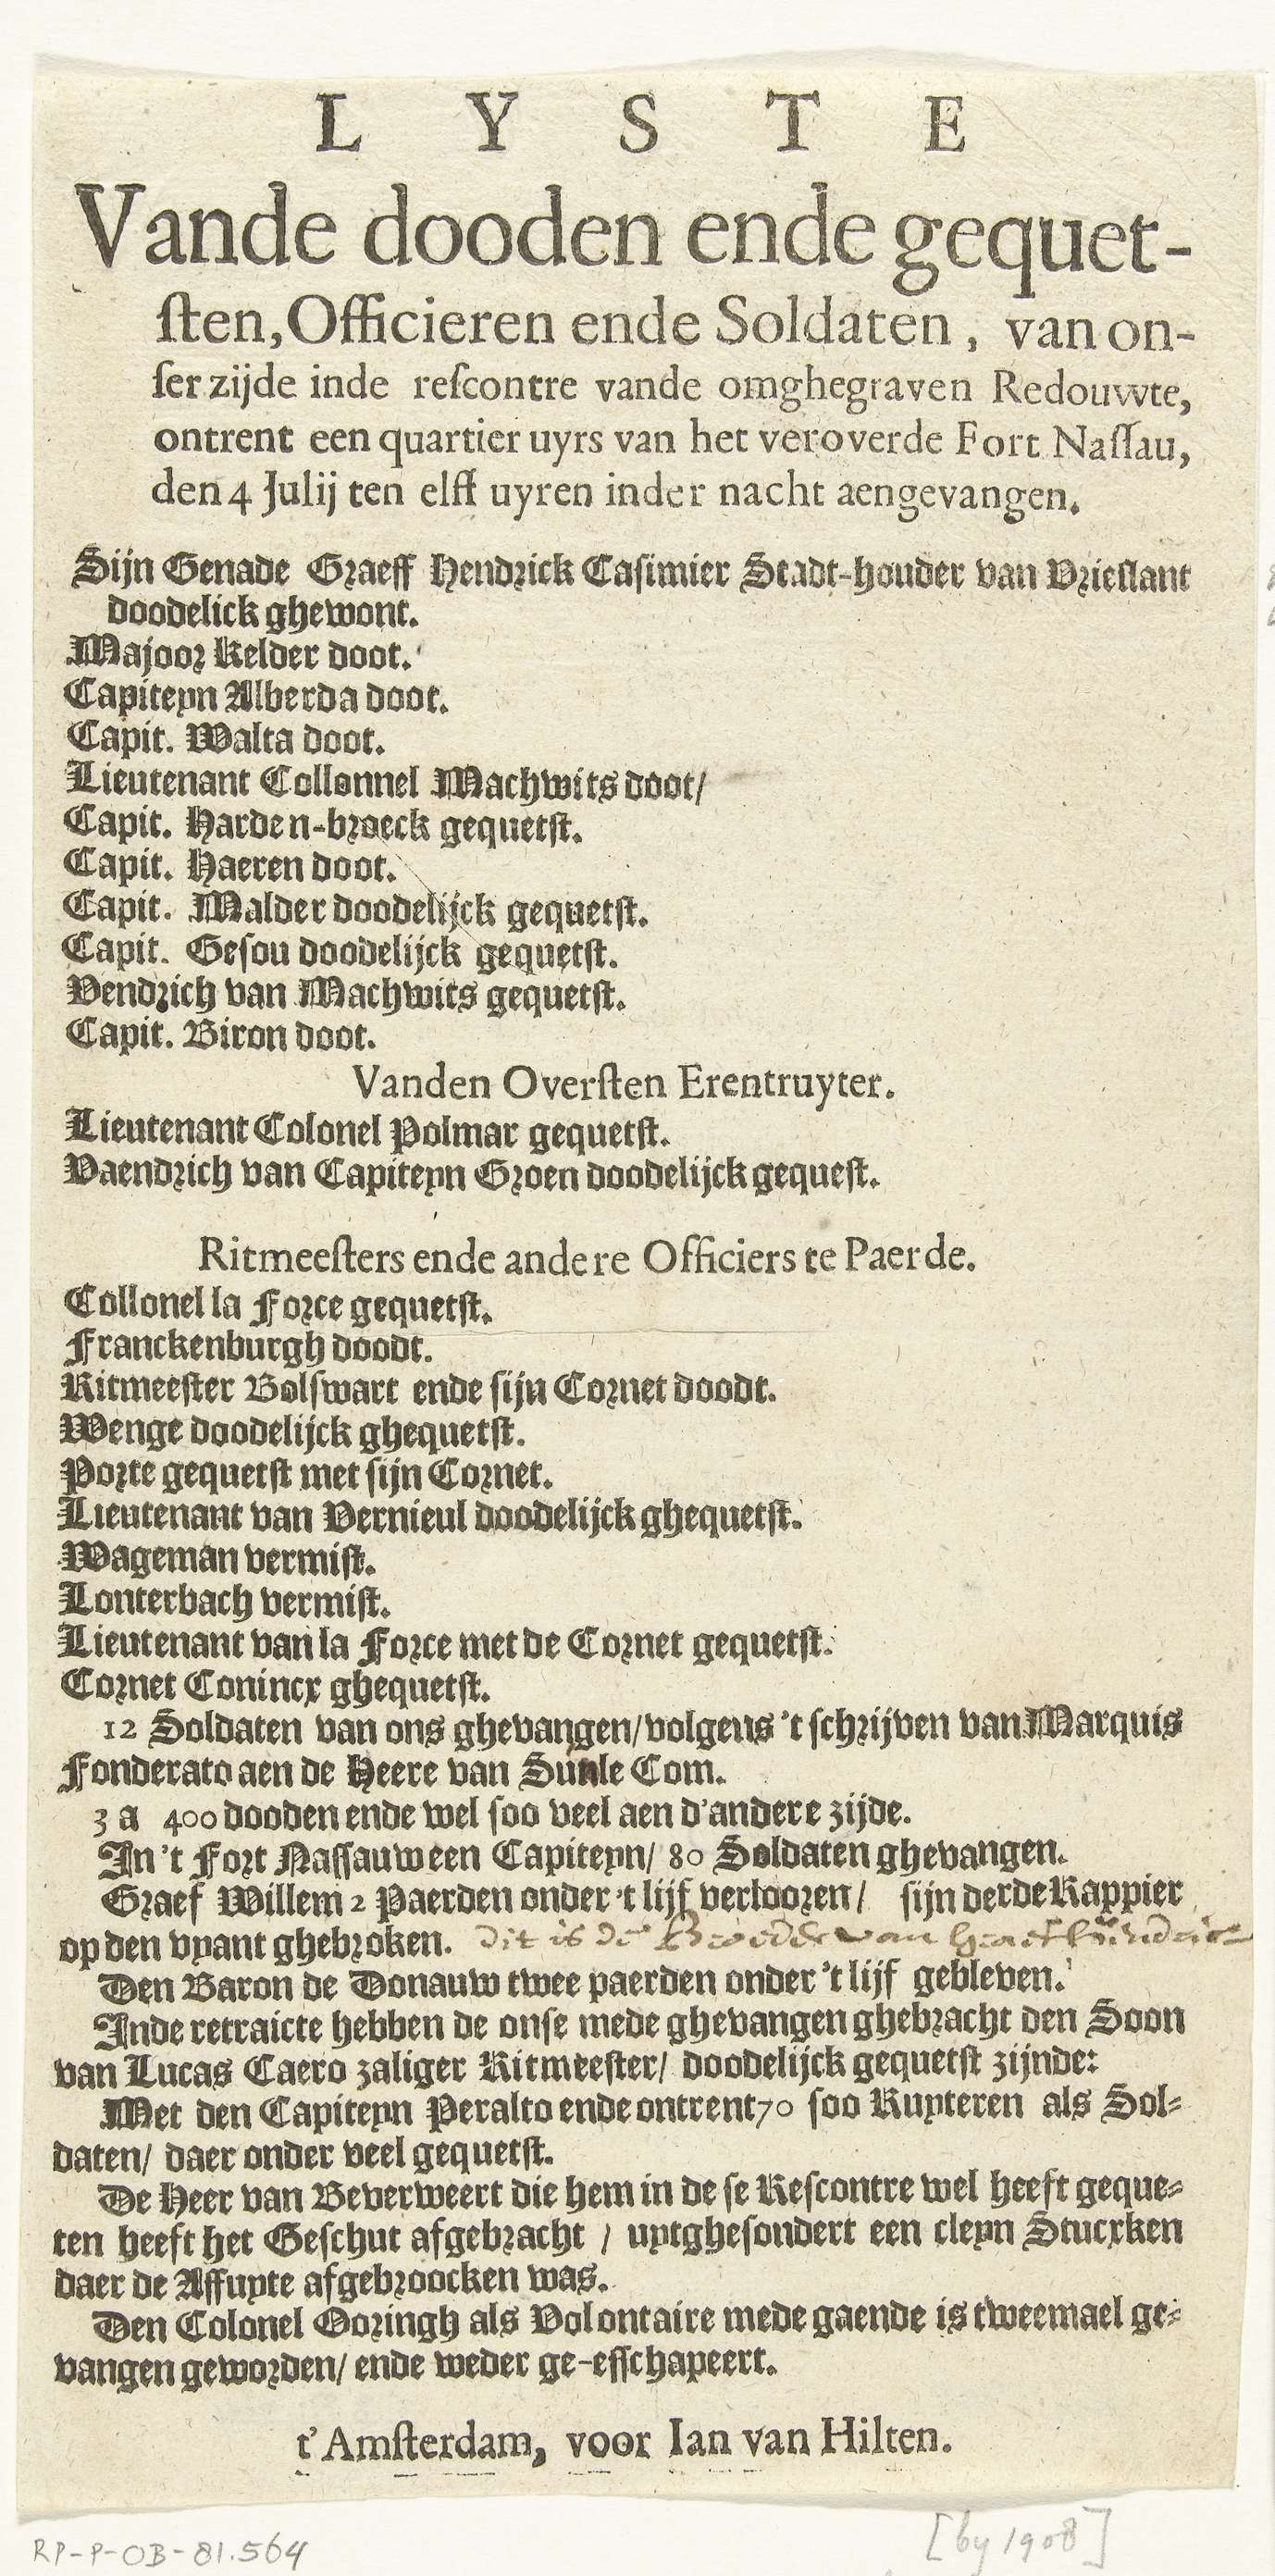 LYSTE
Vande dooden ende gequet-
ſten, Officieren ende Soldaten, van on-
ſer zijde inde reſcontre vande omghegraven Redouwte,
ontrent een quartier uyrs van het veroverde Fort Naſſau,
den 4 Julij ten elff uyren inder nacht aengevangen.
Sijn Genade Graeff Hendrick Caſimier Stadt-houder van Vrieſlant
doodelick ghewont.
Majoor Kelder doot.
Capiteyn Alberda doot.
Capit. Walta doot.
Lieutenant Collonnel Machwits doot/
Capit. Harden-broeck gequetſt.
Capit. Haeren doot.
Capit. Malder doodelijck gequetſt.
Capit. Geſou doodelijck gequetſt.
Vendrich van Machwits gequetſt.
Capit. Biron doot.
Vanden Overſten Erentruyter.
Lieutenant Colonel Polmar gequetſt.
Vaendrich van Capiteyn Groen doodelijck gequeſt.
Ritmeeſters ende andere Officiers te Paerde.
Collonel la Force gequetſt.
Franckenburgh doodt.
Ritmeeſter Bolſwart ende ſijn Cornet doodt.
Wenge doodelijck ghequetſt.
Porte gequetſt met ſijn Cornet.
Lieutenant van Vernieul doodelijck ghequetſt.
Wageman vermiſt.
Lonterbach vermiſt.
Lieutenant van la Force met de Cornet gequetſt.
Cornet Conincx ghequetſt.
12 Soldaten van ons ghevangen/ volgens 't ſchrijven van Marquis
Fonderato aen de Heere van Sunle Com.
3 a 400 dooden ende wel ſoo veel aen d'andere zijde.
In 't Fort Naſſauw een Capiteyn/ 80 Soldaten ghevangen.
Graef Willem 2 Paerden onder 't lijf verlooren/ ſijn derde Rappier
op den vyant ghebroken. dit is de Broeder van Graef
Den Baron de Donauw twee paerden onder 't lijf gebleven.
Inde retraicte hebben de onſe mede ghevangen ghebracht den Soon
van Lucas Caero zaliger Ritmeeſter/ doodelijck gequetſt zijnde:
Met den Capiteyn Peralto ende ontrent 70 ſoo Ruyteren als Sol-
daten/ daer onder veel gequetſt.
De Heer van Beverweert die hem in de ſe Reſcontre wel heeft geque-
ten heeft het Geſchut afgebracht / uytgheſondert een cleyn Stucxken
daer de Affuyte afgebroocken was.
Den Colonel Ooringh als Volontaire mede gaende is tweemael ge-
vangen geworden/ ende weder ge-eſſchapeert.
t'Amſterdam, voor Ian van Hilten.
RP-P-OB-81.564
[by 1908]